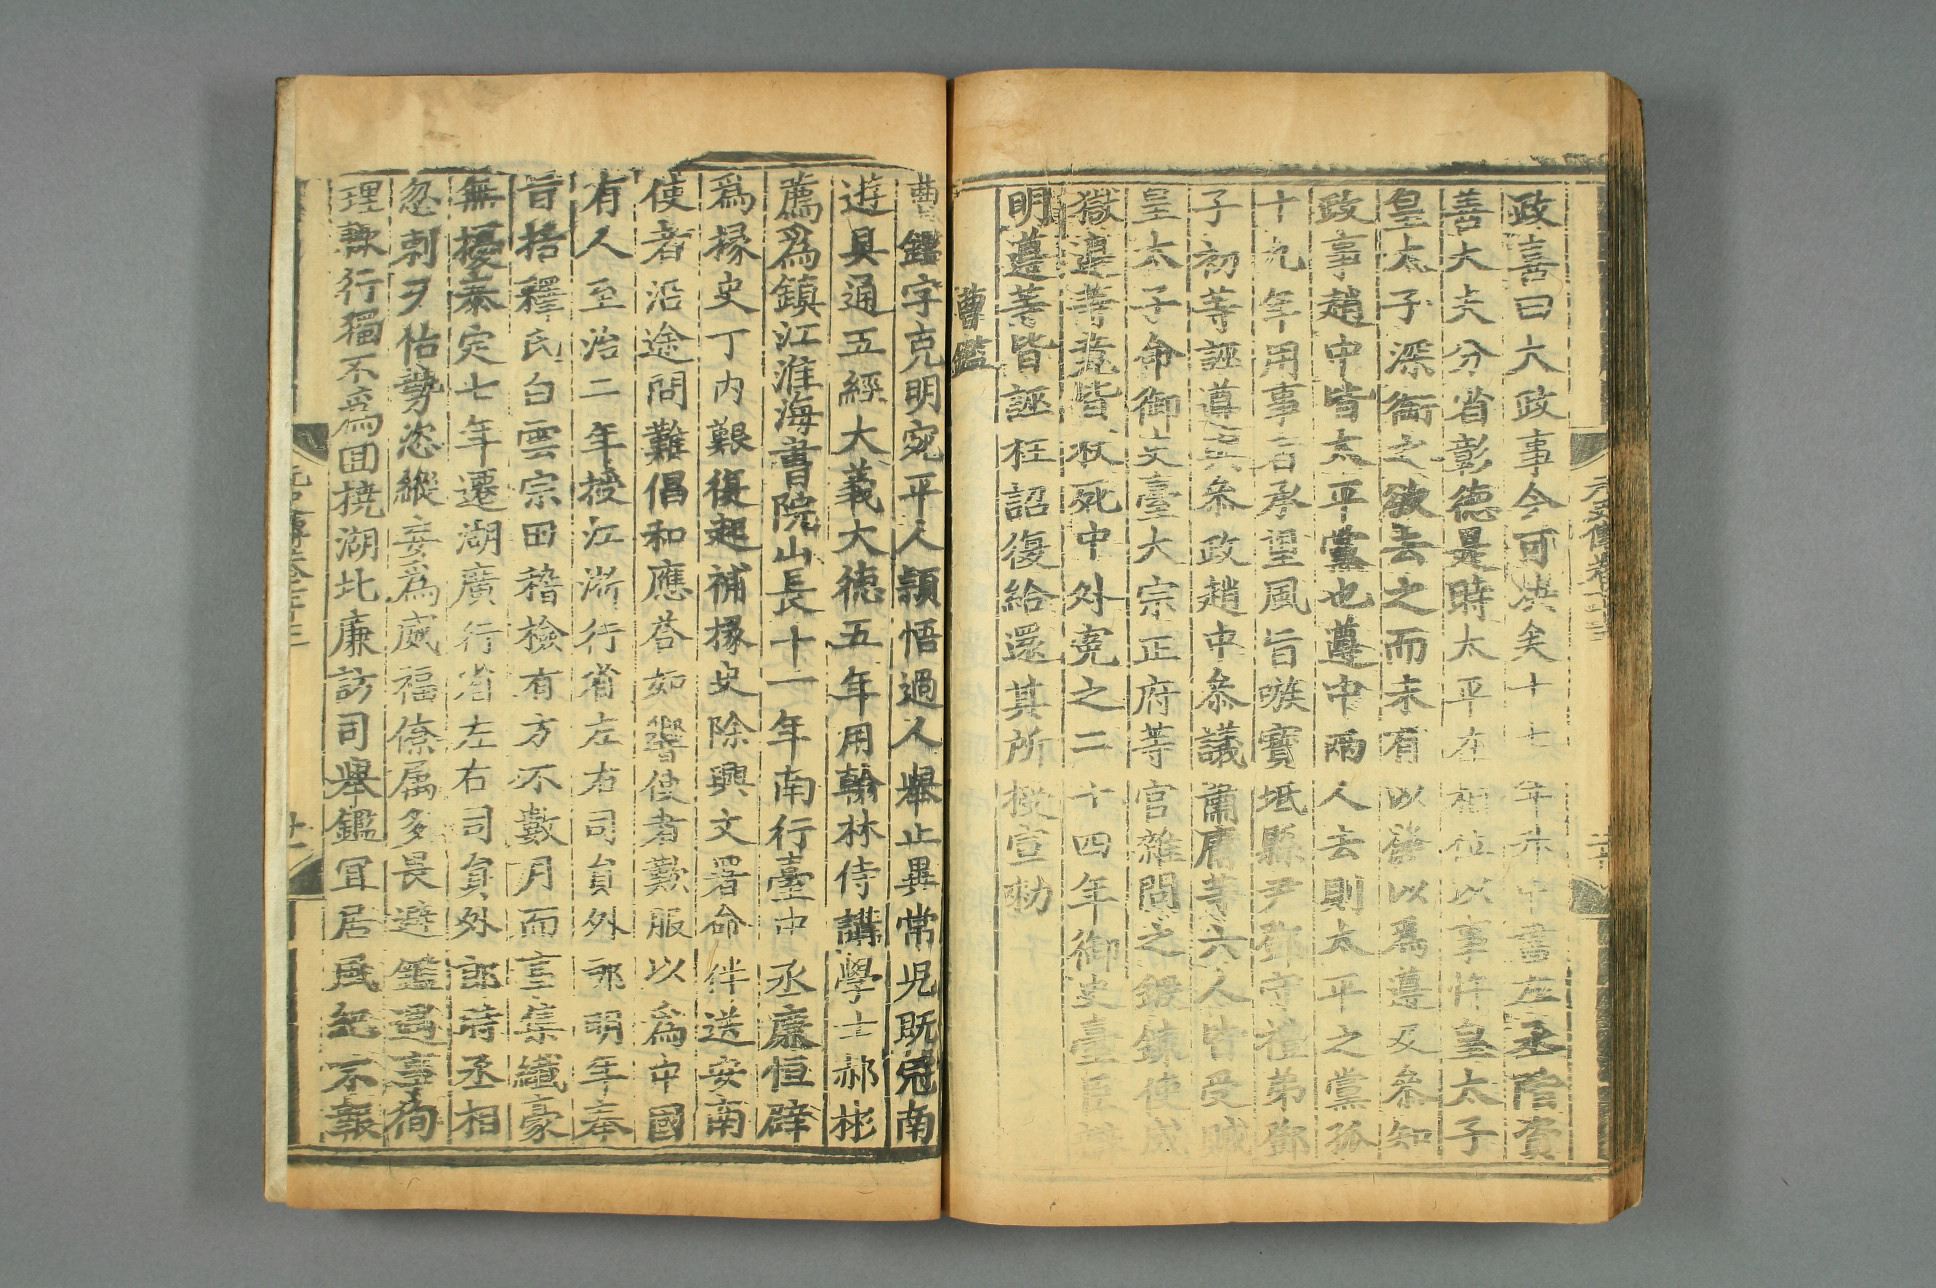 政喜曰大政事今可決矣十七年陞中書左丞階資
善大夫分省彰德是時太平在相位以事忤皇太子
皇太子深銜之欲去之而未有以發以爲遵及參知
政事趙中皆太平黨也遵中兩人去則太平之黨孤
十九年用事者承望風旨嗾寶坻縣尹鄧守禮弟鄧
子初等誣遵與參政趙中參議蕭庸等六人皆受贓
皇太子命御史臺大宗正府等官雜問之鍛鍊使成
獄遵等竟皆杖死中外寃之二十四年御史臺臣辯
明遵等皆誣枉詔復給還其所授宣勑
曹鑑
曹鑑字克明宛平人頴悟過人舉止異常兒旣冠南
遊具通五經大義大德五年用翰林侍講學士郝彬
薦爲鎭江淮海書院山長十一年南行臺中丞廉恒辟
爲掾史丁內艱復起補掾史除興文署命伴送安南
使者沿途問難倡和應答如響使者歎服以爲中國
有人至治二年授江浙行省左右司員外郎明年奉
旨括釋氏白雲宗田稽檢有方不數月而言集纖豪
無擾泰定七年遷湖廣行省左右司員外郎時丞相
忽剌歹怙勢恣縱妄爲威福僚属多畏避鑑遇事徇
理輙行獨不爲回撓湖北廉訪司舉鑑宜居風紀不報